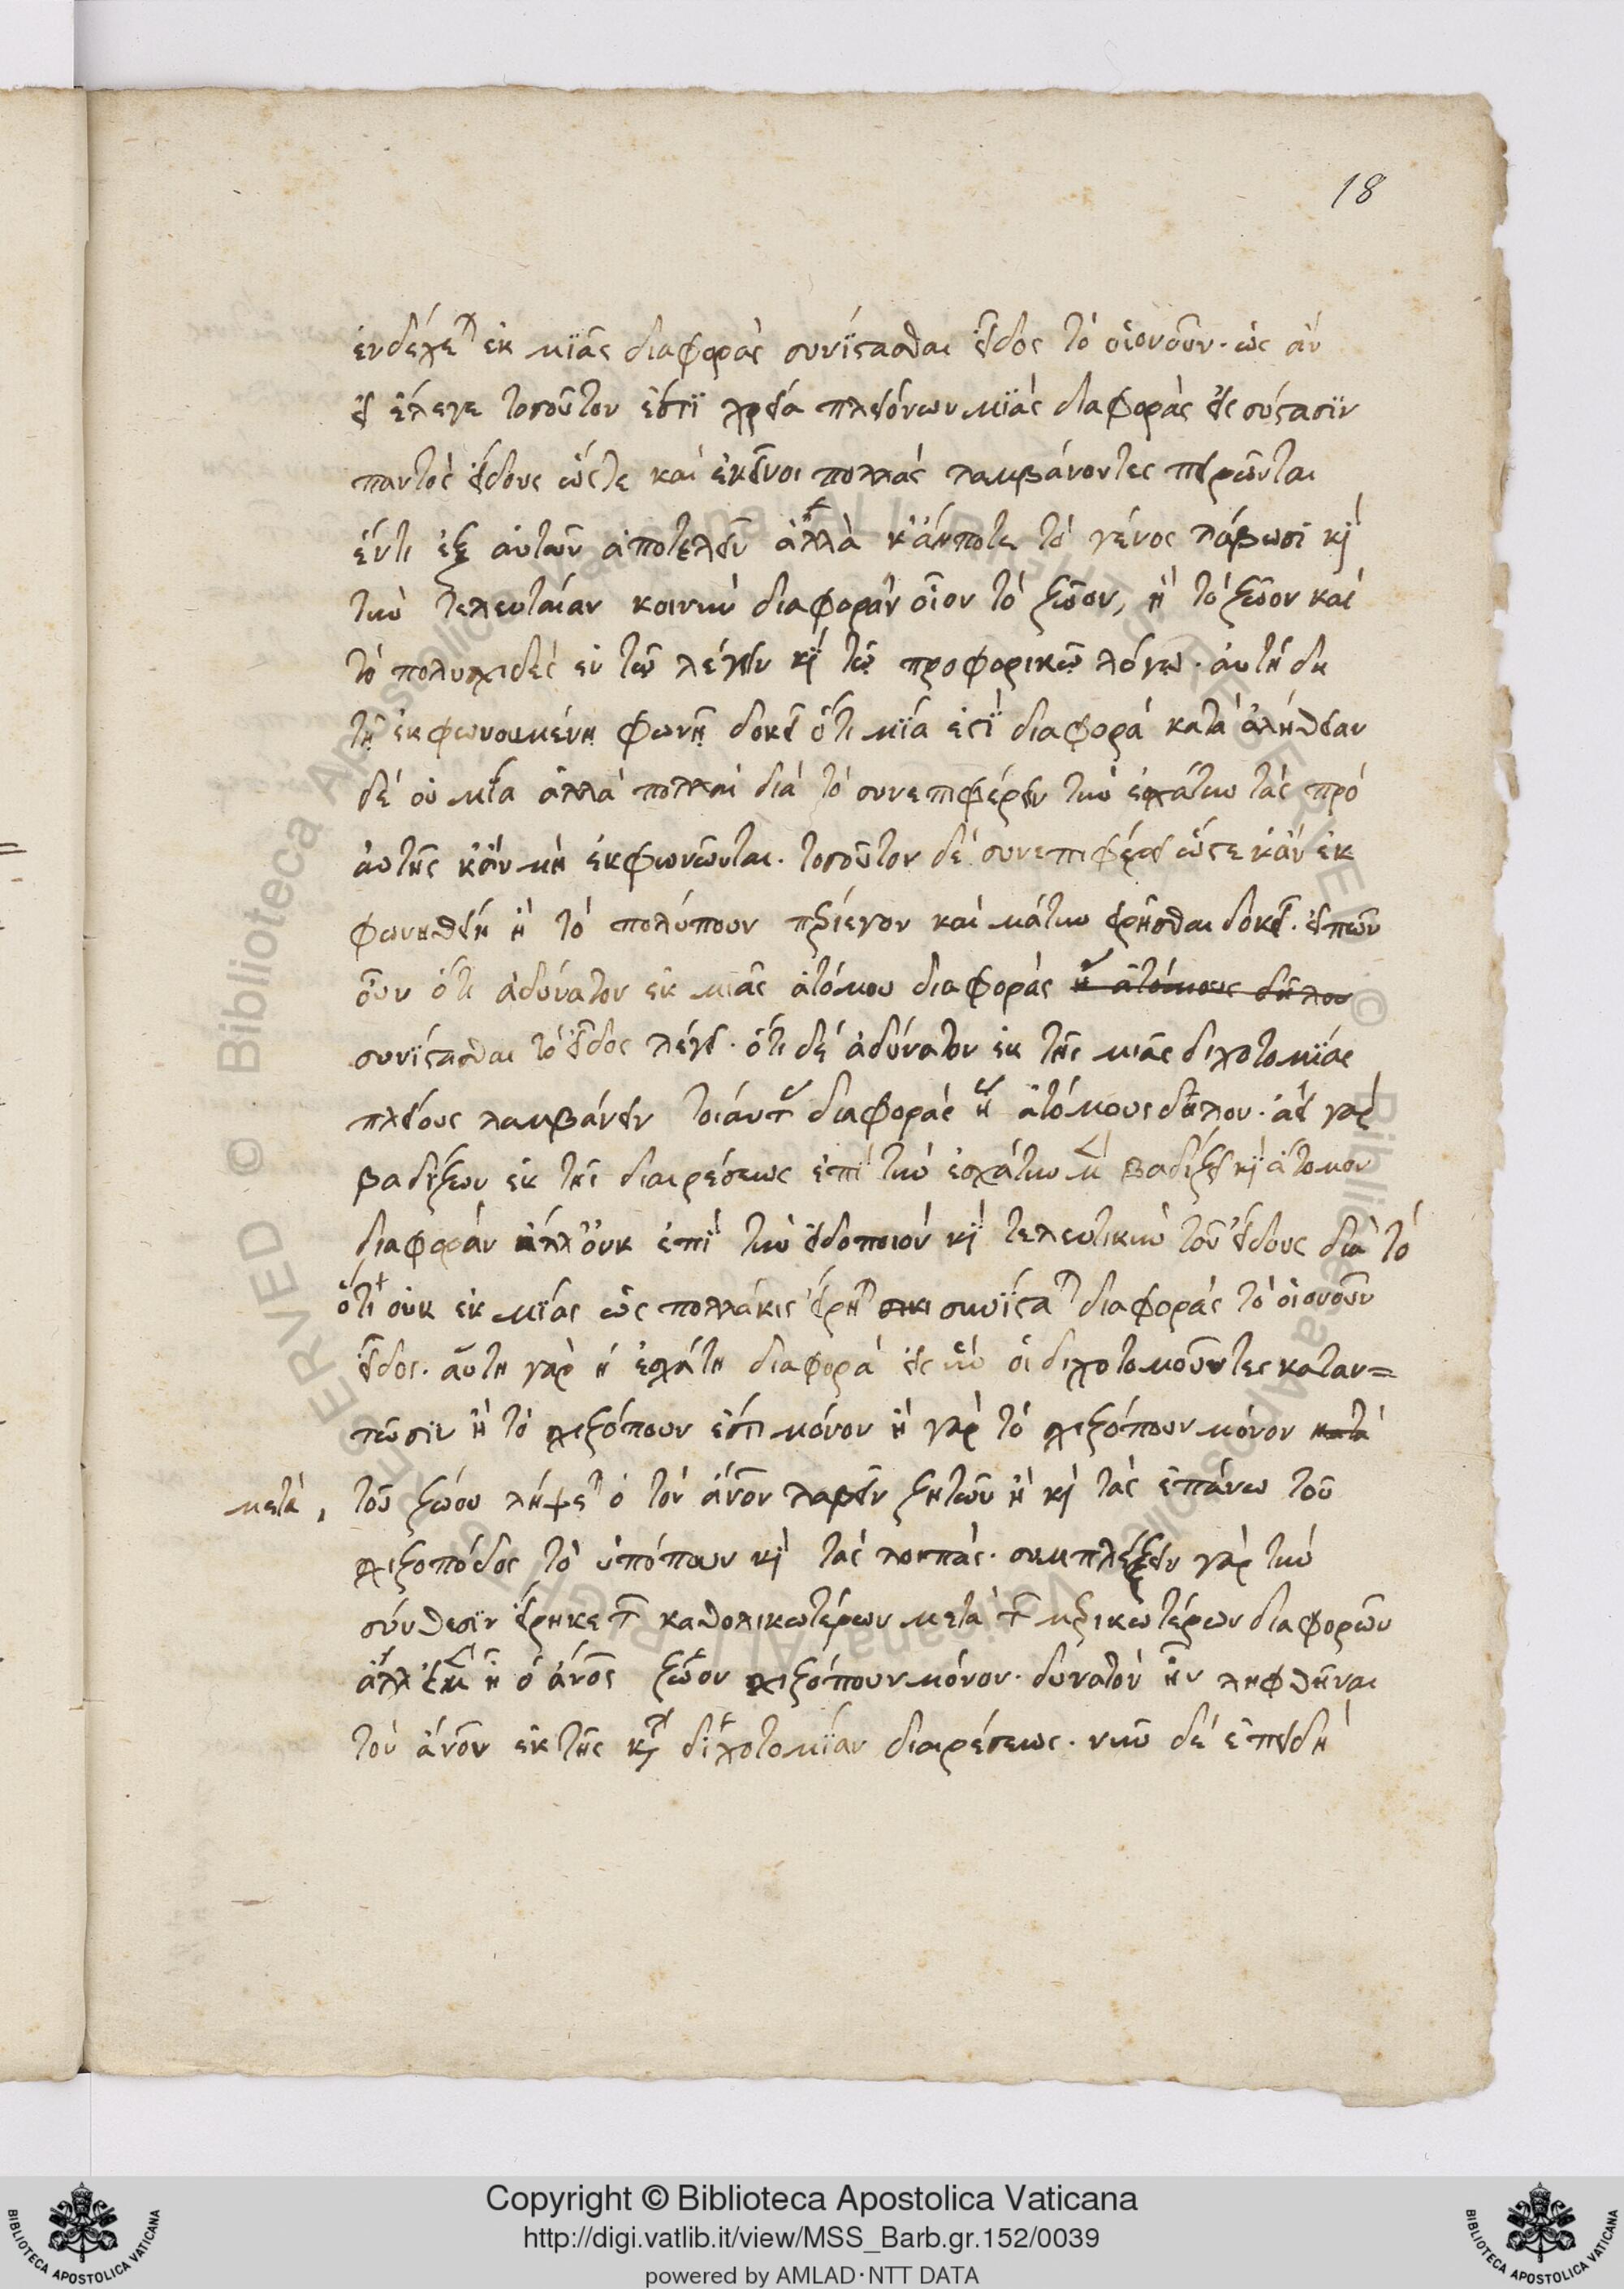 18
ἐνδέχεται ἐκ μϊᾶς διαφορᾶς συνίστασθαι εἶδος τὸ οἱονοῦν· ὡς ἂν
εἰ ἔλεγε τοσοῦτον ἐστὶ χρεία πλειόνων μϊᾶς διαφορᾶς εἰς σύστασϊν
παντὸς εἴδους ὥστε καὶ ἐκεῖνοι πολλὰς λαμβάνοντες πειρῶνται
ἕν τι ἐξ αὐτῶν ἀποτελεῖν ἀλλὰ κἄν ποτε τὸ γένος λάβωσι καὶ
τὴν τελευταίαν κοινὴν διαφορὰν οἷον τὸ ζῶον, ἢ τὸ ζῶον καὶ
τὸ πολυσχιδὲς ἐν τῶ λέγειν καὶ τῶ προφορικῶ λόγω· αὐτῆ δὴ
τῆ ἐκφωνουμένη φωνῆ δοκεῖ ὅτι μϊά ἐστὶ διαφορά κατὰ ἀλήθειαν
δὲ οὐ μία ἀλλὰ πολλαὶ διὰ τὸ συνεπιφέρειν τὴν ἐσχάτην τὰς πρὸ
αὐτῆς κἂν μὴ ἐκφωνῶνται· τοσοῦτον δὲ συνεπιφέρει ὥστε κἂν ἐκ
φωνηθείη ἢ τὸ πολύπουν περίεργον καὶ μάτην εἰρῆσθαι δοκεῖ· εἰπὼν
οὖν ὅτι ἀδύνατον ἐκ μιᾶς ἀτόμου διαφορᾶς ἢ ἀτόμους δῆλον
συνίστασθαι τὸ εἶδος λέγει· ὅτι δὲ ἀδύνατον ἐκ τῆς μιᾶς διχοτομϊας
πλείους λαμβάνειν τοιαύτας διαφορὰς ἢ ἀτόμους δῆλον· ἀεὶ γὰρ
βαδίζων ἐκ τῆς διαιρέσεως ἐπὶ τὴν ἐσχάτην μὲν βαδίζει καὶ ἄτομον
διαφορὰν ἀλλ' οὐκ ἐπὶ τὴν εἰδοποιὸν καὶ τελευτικὴν τοῦ εἴδους διὰ τὸ
ὅτι οὐκ ἐκ μϊᾶς ὡς πολλάκις εἴρηται συνίσταται διαφορᾶς τὸ οἱονοῦν
εἶδος. αὕτη γὰρ ἡ ἐσχάτη διαφορά εἰς ἣν οἱ διχοτομοῦντες καταν=
τῶσιν ἢ τὸ σχιζόπουν ἐστὶ μόνον ἢ γὰρ τὸ σχιζόπουν μόνον κατὰ
μετὰ, τοῦ ζώου λήψεται ὁ τὸν ἄνον λαβεῖν ζητῶν ἢ καὶ τὰς ἐπάνω τοῦ
σχιζοπόδος τὸ ὑπόπουν καὶ τὰς λοιπάς· συμπλέξειν γὰρ τὴν
σύνθεσϊν εἴρηκε τῶν καθολικωτέρων μετὰ τῶν μερικωτέρων διαφορῶν
ἀλλ' εἰ μὲν ἦ ὁ ἄνος ζῶον σχιζόπουν μόνον· δυνατὸν ἦν ληφθῆναι
τὸν ἄνον ἐκ τῆς κατὰ διχοτομϊαν διαιρέσεως. νῦν δὲ ἐπειδὴ
Copyright © Biblioteca Apostolica Vaticana
http://digi.vatlib.it/view/MSS_Barb.gr.152/0039
powered by AMLAD·NTT DATA